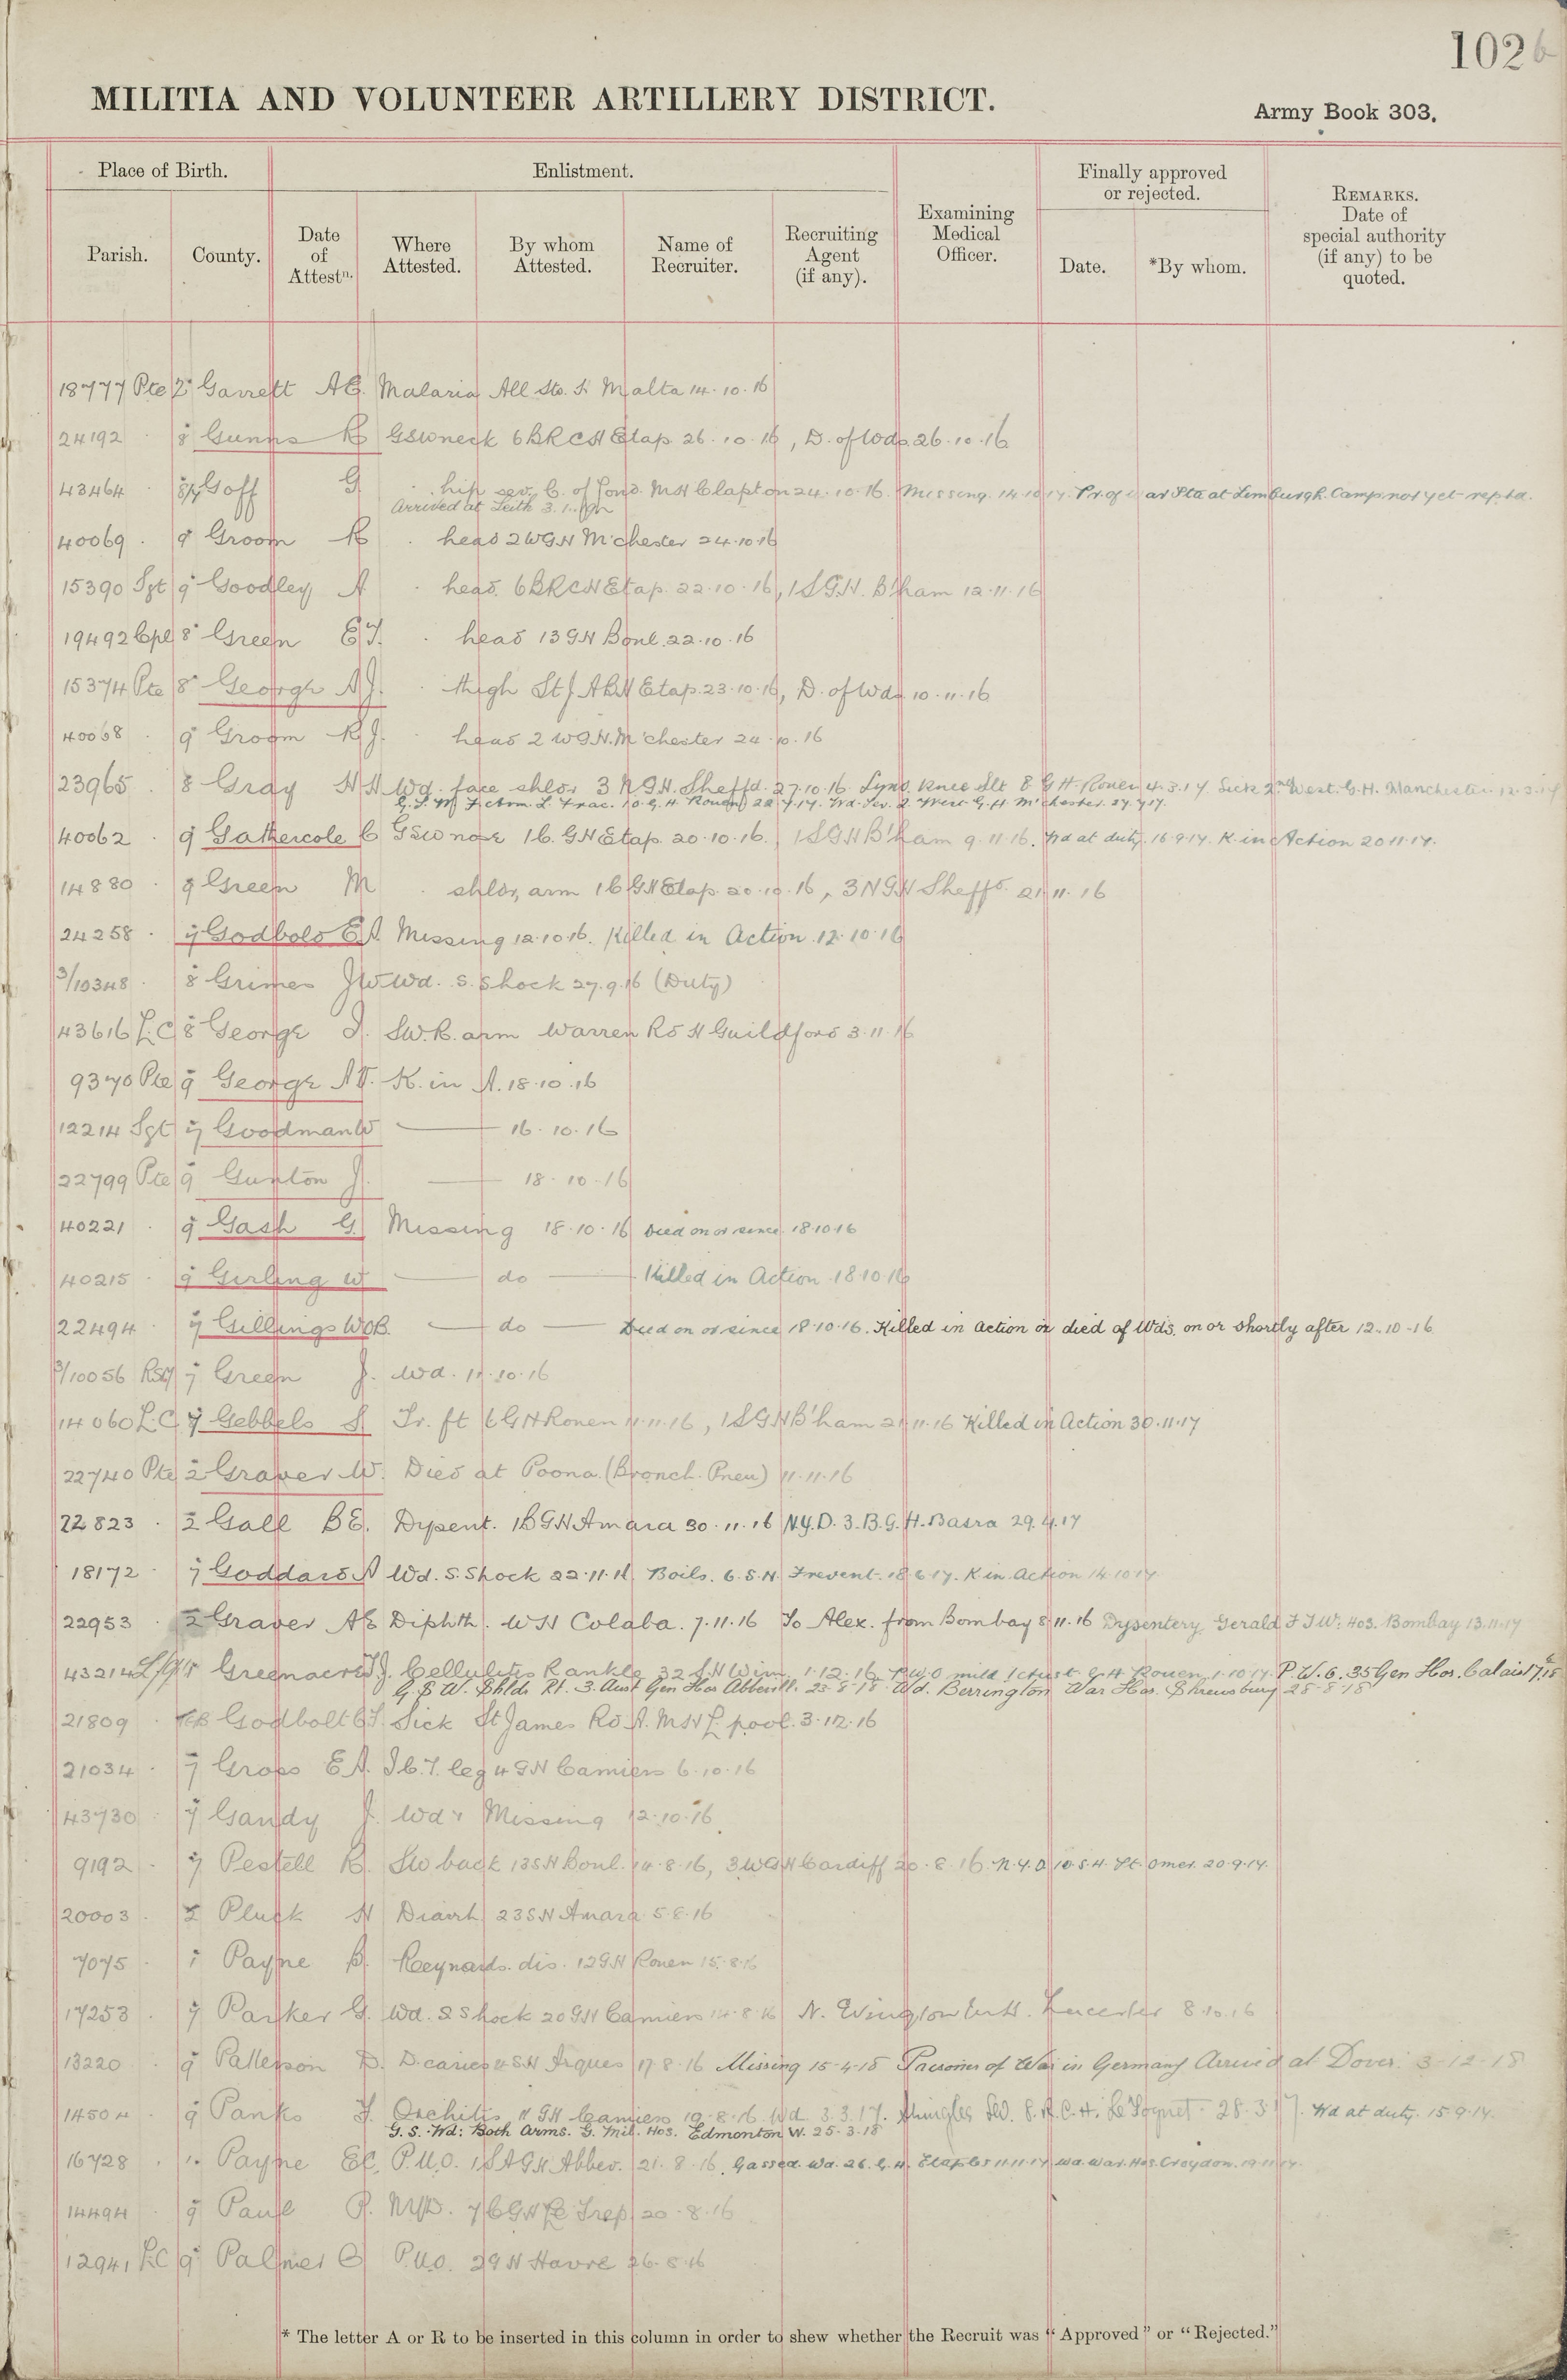 102b
MILITIA AND VOLUNTEER ARTILLERY DISTRICT.
Army Book 303.
Place of Birth.
Enlistment.
Finally approved or rejected.
Parish.
County.
Date of Attestn.
Where Attested.
By whom Attested.
Name of Recruiter.
Recruiting Agent (if any).
Examining Medical Officer.
Date.
*By whom.
REMARKS. Date of special authority (if any) to be quoted.
18777 Pte 2 Garrett A C. Malaria All Sts. H Malta 14.10.16
24192 . 8 Gunns R GSW neck 6 BRCH Etap. 26.10.16, D. of Wds 26.10.16
43464 . 8/7 Goff G . hip sev. C. of Lond. MH Clapton 24.10.16. Missing. 14.10.17. Pr. of War Sta at Limburgh. Camp not yet reptd.
Arrived at Leith 3.1.19
40069 . 9 Groom R . head 2 WGH M'chester 24.10.16
15390 Sgt 9 Goodley A . head. 6 BRCH Etap. 22.10.16, 1 SGH. B'ham 12.11.16
19492 Cpl 8 Green E J. . head 13 GH Boul. 22.10.16
15374 Pte 8 George A J. . thigh St J ABH Etap. 23.10.16, D. of Wds 10.11.16
40068 . 9 Groom R J. . head 2 WGH. M'chester 24.10.16
23965 . 8 Gray H H Wd. face shldr 3 NGH. Sheffd. 27.10.16. Syno. Knee Slt 8 G H Rouen 4.3.17. Sick 2nd West. G.H. Manchester 12.3.17
G.S.W F'Arm. L Frac. 10. G. H. Rouen 22.7.17. Wd. Sev. 2 West G.H. M'chester. 27.7.17.
40062 . 9 Gathercole C GSW nose 16. GH Etap. 20.10.16., 1 SGH B'ham 9.11.16. Wd at duty. 16.9.17. K. in Action 20.11.17.
14880 . 9 Green M . shldr, arm 16 GH Etap. 20.10.16, 3 NGH Sheffd. 21.11.16
24258 . 7 Godbold E A. Missing 12.10.16. Killed in Action 12.10.16
3/10348 . 8 Grimes J W Wd. S. Shock 27.9.16 (Duty)
43616 L.C 8 George J. SW. R. arm Warren Rd H Guildford 3.11.16
9370 Pte 9 George A V. K. in A. 18.10.16
12214 Sgt 7 Goodman W —— 16.10.16
22799 Pte 9 Gunton J. —— 18.10.16
40221 . 9 Gash G Missing 18.10.16 Died on or since 18.10.16
40215 . 9 Girling W —— do —— Killed in Action 18.10.16
22494 . 7 Gillings W O B. —— do —— Died on or since 18.10.16. Killed in action or died of Wds. on or shortly after 12.10.16
3/10056 RSM 7 Green J. Wd. 11.10.16
14060 L.C. 7 Gebbels S Tr. ft 6 GH Rouen 11.11.16, 1 SGH B'ham 21.11.16 Killed in Action 30.11.17
22740 Pte 2 Graver W. Died at Poona. (Bronch. Pneu) 11.11.16
22823 . 2 Gall B E. Dysent. 1 BGH Amara 30.11.16 N.Y.D. 3. B. G. H. Basra 29.4.17
18172 . 7 Goddard A Wd. S. Shock 22.11.16. Boils. 6. S. H. Frevent. 18.6.17. K in. Action 14.10.17
22953 . 2 Graver A E Diphth. WH Colaba. 7.11.16 To Alex. from Bombay 8.11.16 Dysentery Gerald F T W: Hos. Bombay 13.11.17
43214 Greenacre J. Cellulitis R ankle 32 S.H Wim. 1.12.16. PUO mild 1 Aust G.H Rouen 1.10.17. P. W. 6. 35 Gen Hos. Calais
G S W. Shldr Rt. 3. Aust Gen Hos Abbevill. 23.8.18 Wd. Berrington War Hos. Shrewsbury 28.8.18
21809 . Godbolt C J. Sick St James Rd A. MSH L'pool. 3.12.16
21034 . 7 Gross E A. I.C.T. leg 4 GH Camiers 6.10.16
43730 . 7 Gandy J. Wd & Missing 12.10.16
9192 . 7 Pestell R. SW back 13 SH Boul. 14.8.16, 3 WGH Cardiff 20.8.16. N.Y.D 10. S. H. St. Omer. 20.9.17.
20003 . 2 Pluck H Diarrh 23 SH Amara 5.8.16
7075 . 1 Payne B. Reynards. dis. 12 GH Rouen 15.8.16
17253 . 7 Parker G. Wd. S Shock 20 GH Camiers 14.8.16 N. Evington Leicester 8.10.16
13220 . 9 Patterson D. D. caries 4 SH Arques 17.8.16 Missing 15-4-18 Prisoner of War in Germany Arrived at Dover. 3-12-18
14504 . 9 Panks F. Orchitis 11 GH Camiers 19.8.16. Wd. 3.3.17. Shingles 8. R. C. H. Le Toquet - 28.3.17. Wd at duty. 15.9.17.
G. S. Wd: Both Arms. G. Mil. Hos. Edmonton W. 25.3.18
16728 . Payne E C. P.U.O. 1 S A G H Abbev. 21.8.16. Gassed. Wd. 26. G. H. Etaples 11.11.17 Wd. War. Hos. Croydon. 19.11.17.
14494 . 9 Paul P. NYD. 7 CGH Le Trep. 20.8.16
12941 L.C 9 Palmer C P.U.O. 2 GH Havre 26.8.16
* The letter A or R to be inserted in this column in order to shew whether the Recruit was "Approved" or "Rejected."